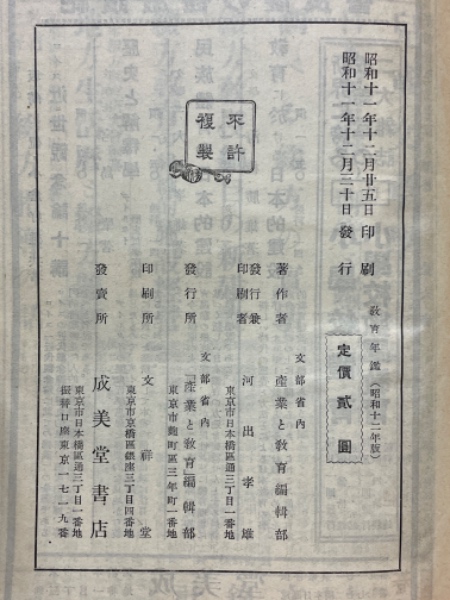 昭和十一年十二月廿五日印刷
昭和十一年十二月三十日發行
教育年鑑（昭和十二年版）
定價貳圓
不許
複製
著作者
文部省内
産業と教育編輯部
發行兼
印刷者
河出孝雄
東京市日本橋區通三丁目一番地
發行所
文部省内
「産業と教育」編輯部
東京市麴町區三年町一番地
印刷所
文祥堂
東京市京橋區銀座三丁目四番地
發賣所
成美堂書店
東京市日本橋區通三丁目一番地
振替口座東京一七一九番